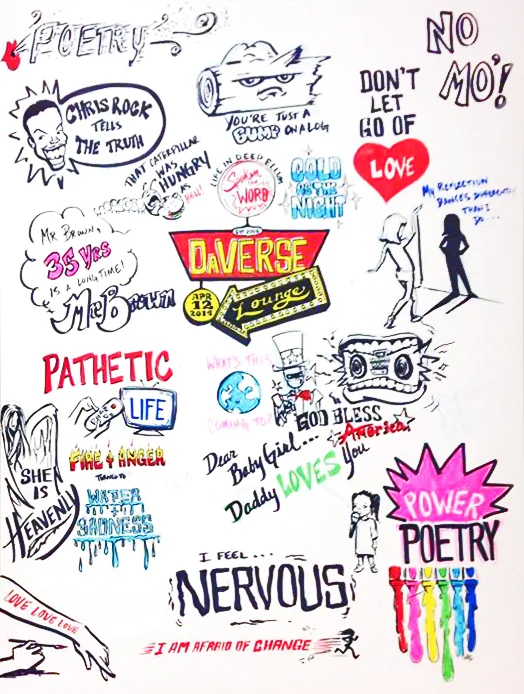 POETRY
NO
MO'!
CHRIS ROCK
TELLS
THE TRUTH
YOU'RE JUST A
BUMP ON A LOG
DON'T
LET
GO OF
LOVE
THAT CATERPILLAR
WAS
HUNGRY
AS
HELL!
LIVE IN DEEP ELLUM
Spoken
WORD
COLD
AS THE
NIGHT
MY REFLECTION
DANCES DIFFERENTLY
THAN I
DO...
Mr Brown,
35 YRS
IS A LONG TIME!
Mr Brown
DAVERSE
Lounge
APR
12
2014
PATHETIC
LIFE
WHAT'S THIS
COMING TO?
GOD BLESS
America
Dear
Baby Girl...
Daddy LOVES
You
SHE
IS
HEAVENLY
FIRE & ANGER
TURNED TO
WATER
SADNESS
POWER
POETRY
I FEEL...
NERVOUS
LOVE LOVE LOVE
I AM AFRAID OF CHANGE